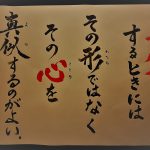 するときには
その形ではなく
その心を
真似するのがよい。